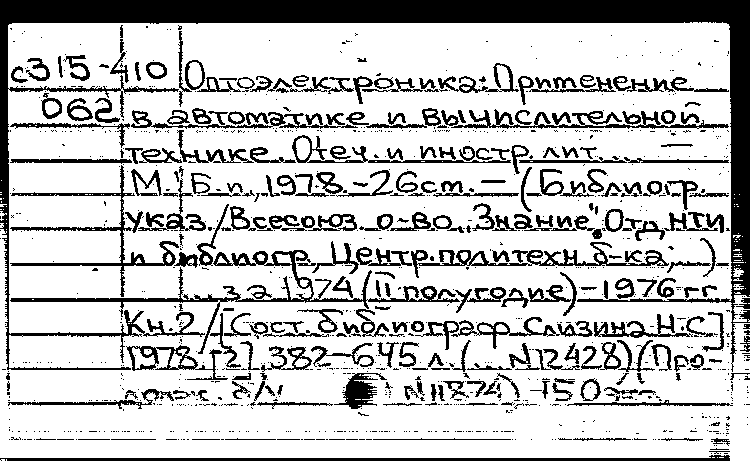 с315-410 Оптоэлектроника: Применение
062 в автоматике и вычислительной
технике. Отеч. и иностр. лит. ... —
М.: Б.и., 1978. - 26 см. — (Библиогр.
указ./Всесоюз. о-во „Знание". Отд. НТИ
и библиогр., Центр. политехн. б-ка; ...)
... за 1974 (II полугодие) - 1976 гг.
Кн. 2 / [Сост. библиограф Слизина Н.С.]
1978. [2], 382-645 л. (... N12428) (Про-
долж. б/у N11874) 150 экз.